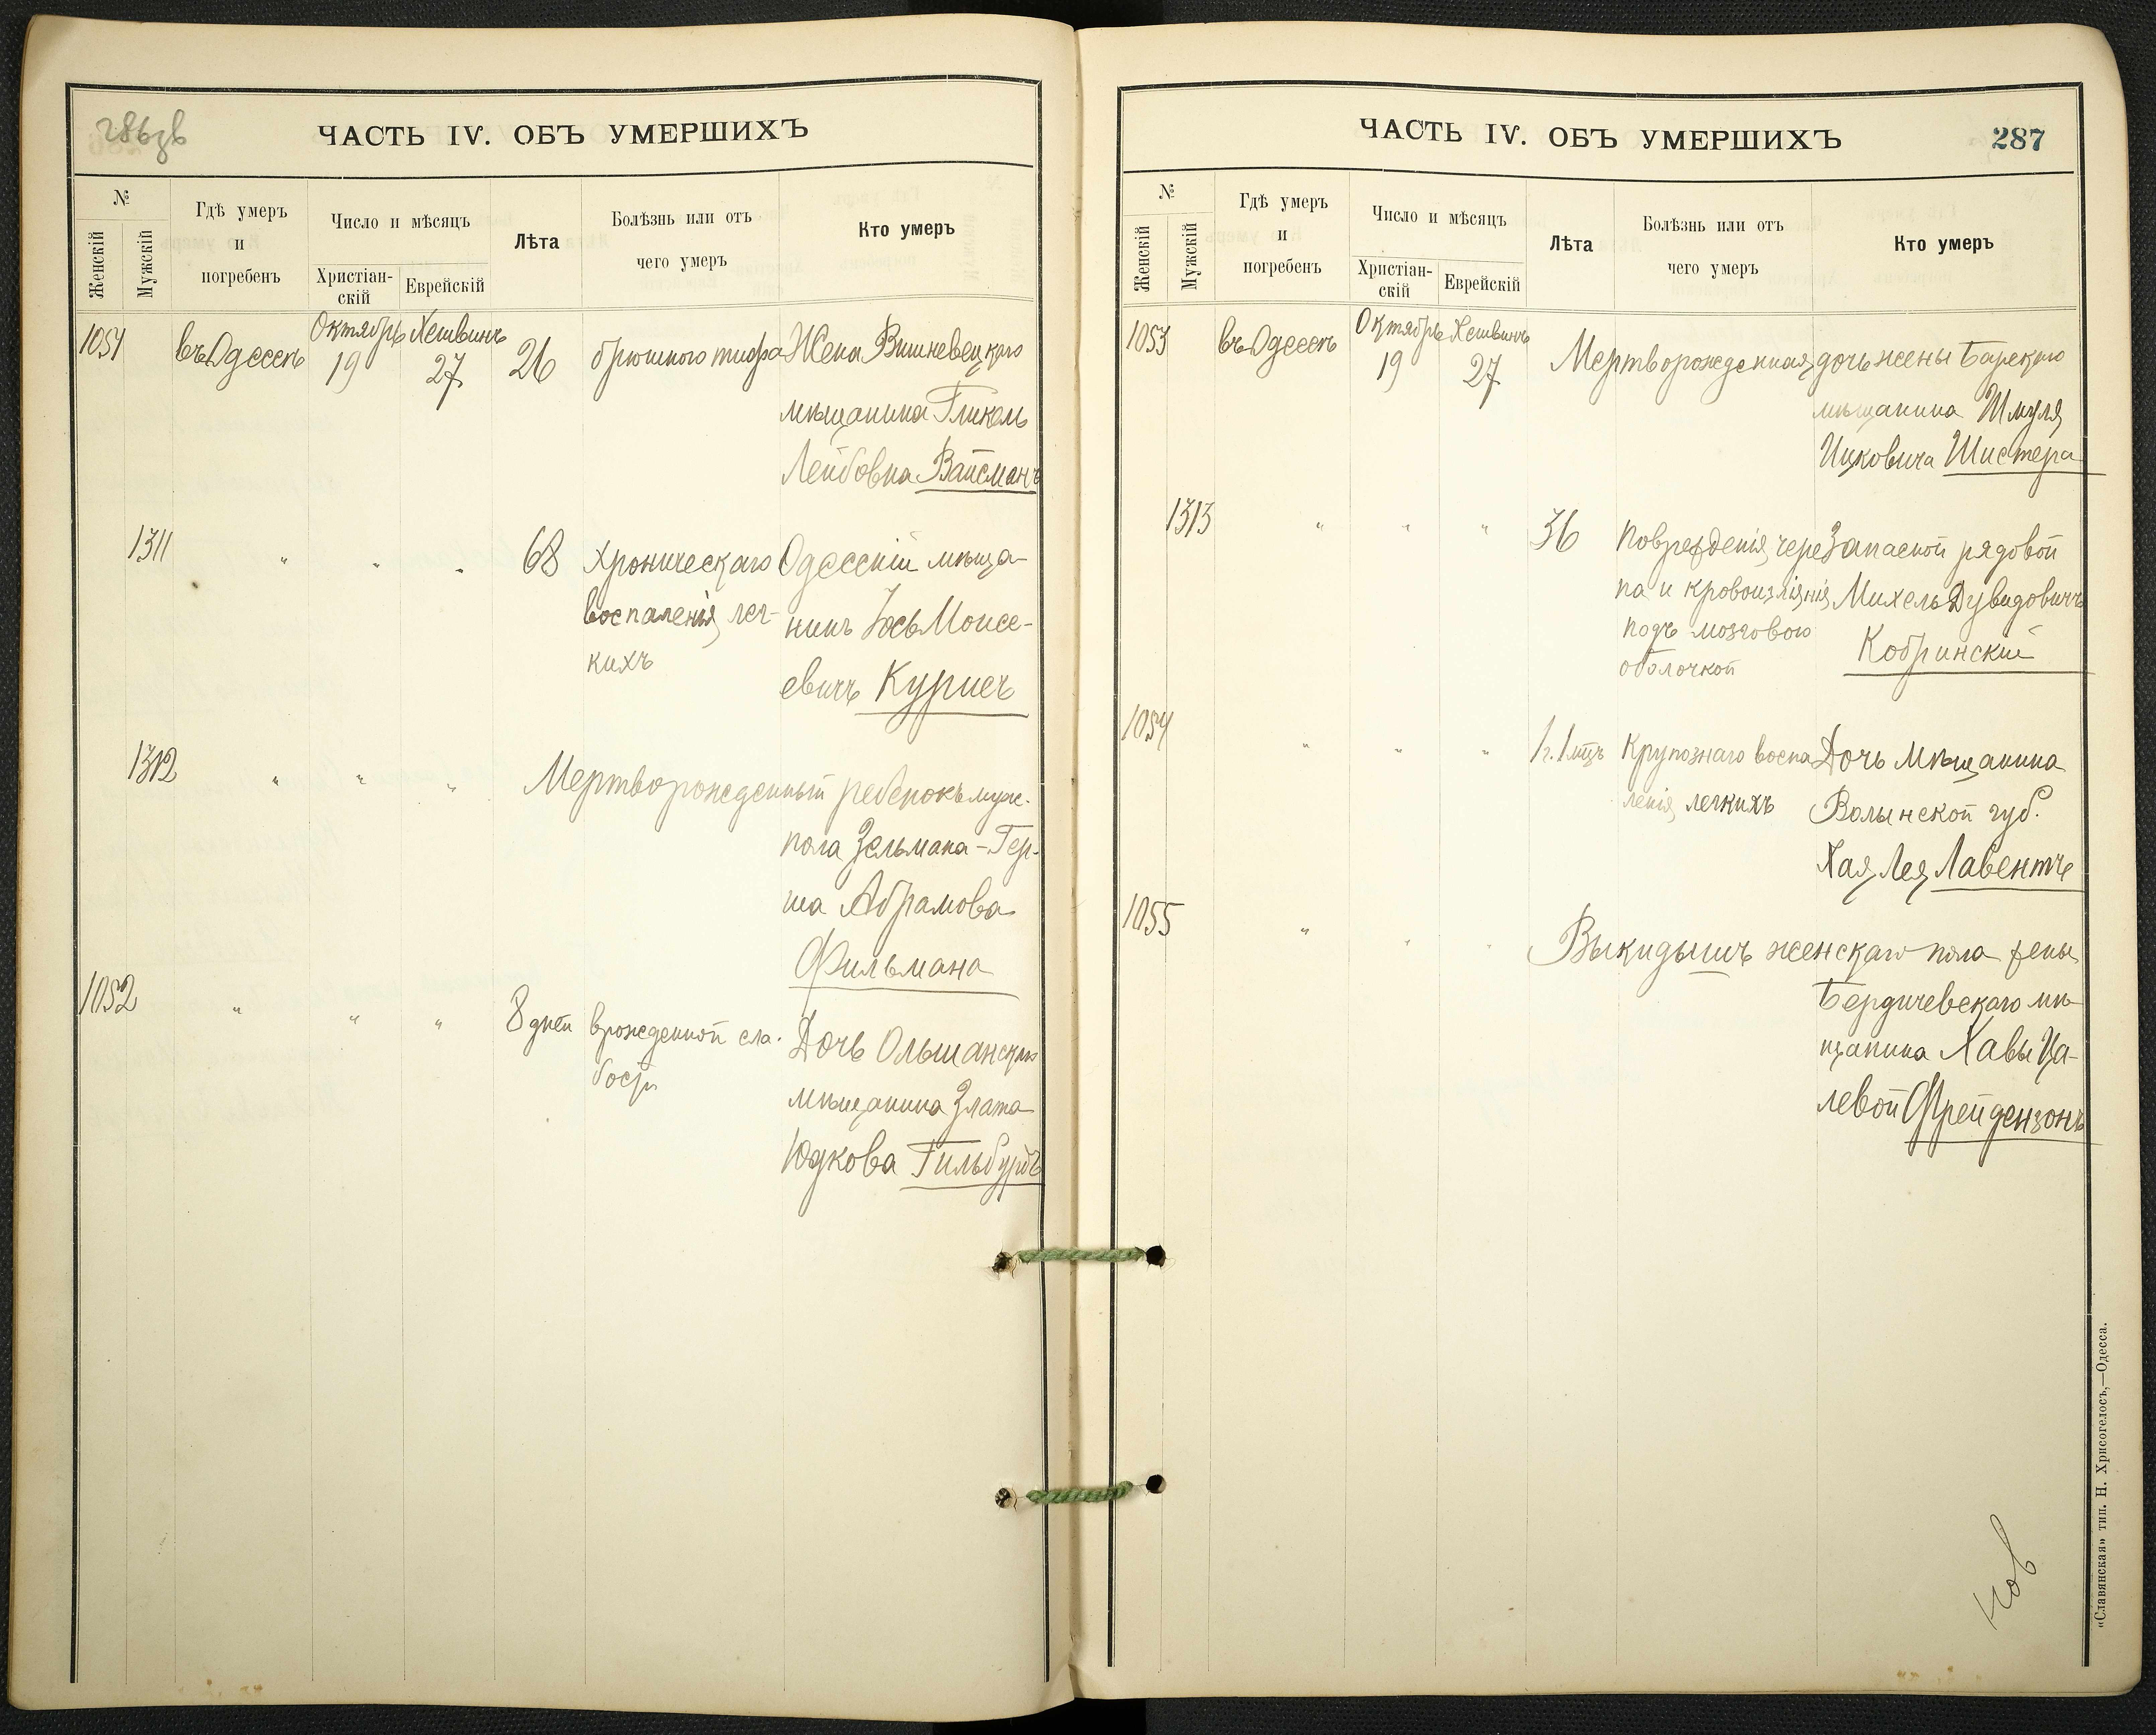 286 зв
ЧАСТЬ IV. ОБЪ УМЕРШИХЪ
№
Женскій
Мужскій
Гдѣ умеръ
и
погребенъ
Число и мѣсяцъ
Христіан-
скій
Еврейскій
Лѣта
Болѣзнь или отъ
чего умеръ
Кто умеръ
1051 въ Одессѣ Октябрь 19 Хешвинъ 27 26 брюшного тифа Жена Вишневецкаго
мѣщанина Гликель
Лейбовна Вайсманъ
1311 " " " 68 Хроническаго Одесскій мѣща-
воспаленія лег- нинъ Іось Моисе-
кихъ евичъ Курисъ
1312 " " " Мертворожденный ребенокъ муж.
пола Зельмана-Гер-
ша Абрамова
Фильмана
1052 " " " 8 дней врожденной сла- Дочь Ольшанскаго
бости мѣщанина Злата
Юдкова Гильбурдъ
ЧАСТЬ IV. ОБЪ УМЕРШИХЪ
287
№
Женскій
Мужскій
Гдѣ умеръ
и
погребенъ
Число и мѣсяцъ
Христіан-
скій
Еврейскій
Лѣта
Болѣзнь или отъ
чего умеръ
Кто умеръ
1053 въ Одессѣ Октябрь 19 Хешвинъ 27 Мертворожденная дочь жены Барскаго
мѣщанина Шмуля
Ицковича Шистера
1313 " " " 36 Поврежденія чере- Запасной рядовой
па и кровоизліянія Михель Дувидовичъ
подъ мозговою Кобринскій
оболочкой
1054 " " " 1 г. 1 мцъ Крупознаго воспа- Дочь мѣщанина
ленія легкихъ Волынской губ.
Хая Лея Лавентъ
1055 " " " Выкидышъ женскаго пола жены
Бердичевскаго мѣ-
щанина Хавы Ца-
левой Фрейдензонъ
«Славянская» тип. Н. Хрисогелосъ,—Одесса.